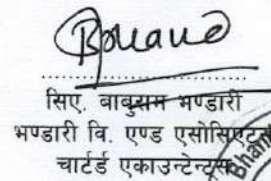 सिए. बाबुराम भण्डारी
भण्डारी वि. एण्ड एसोसिएट्स
चार्टर्ड एकाउन्टेन्ट्स